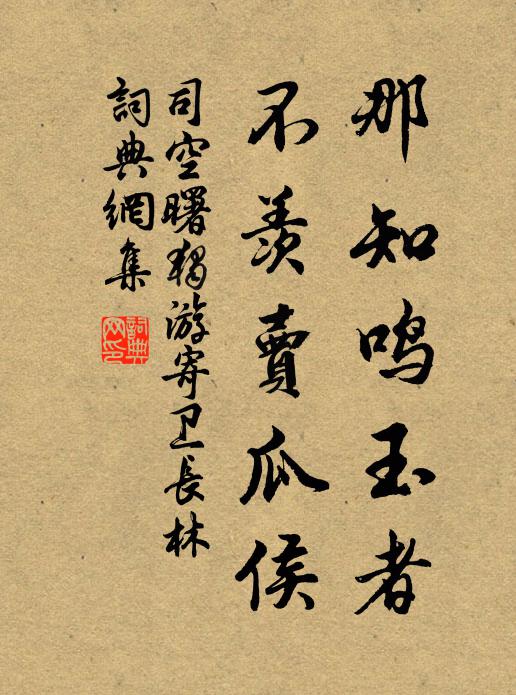 那知鸣玉者
不羨賣瓜侯
司空曙獨游寄卫長林
詞典網集
詞典网印